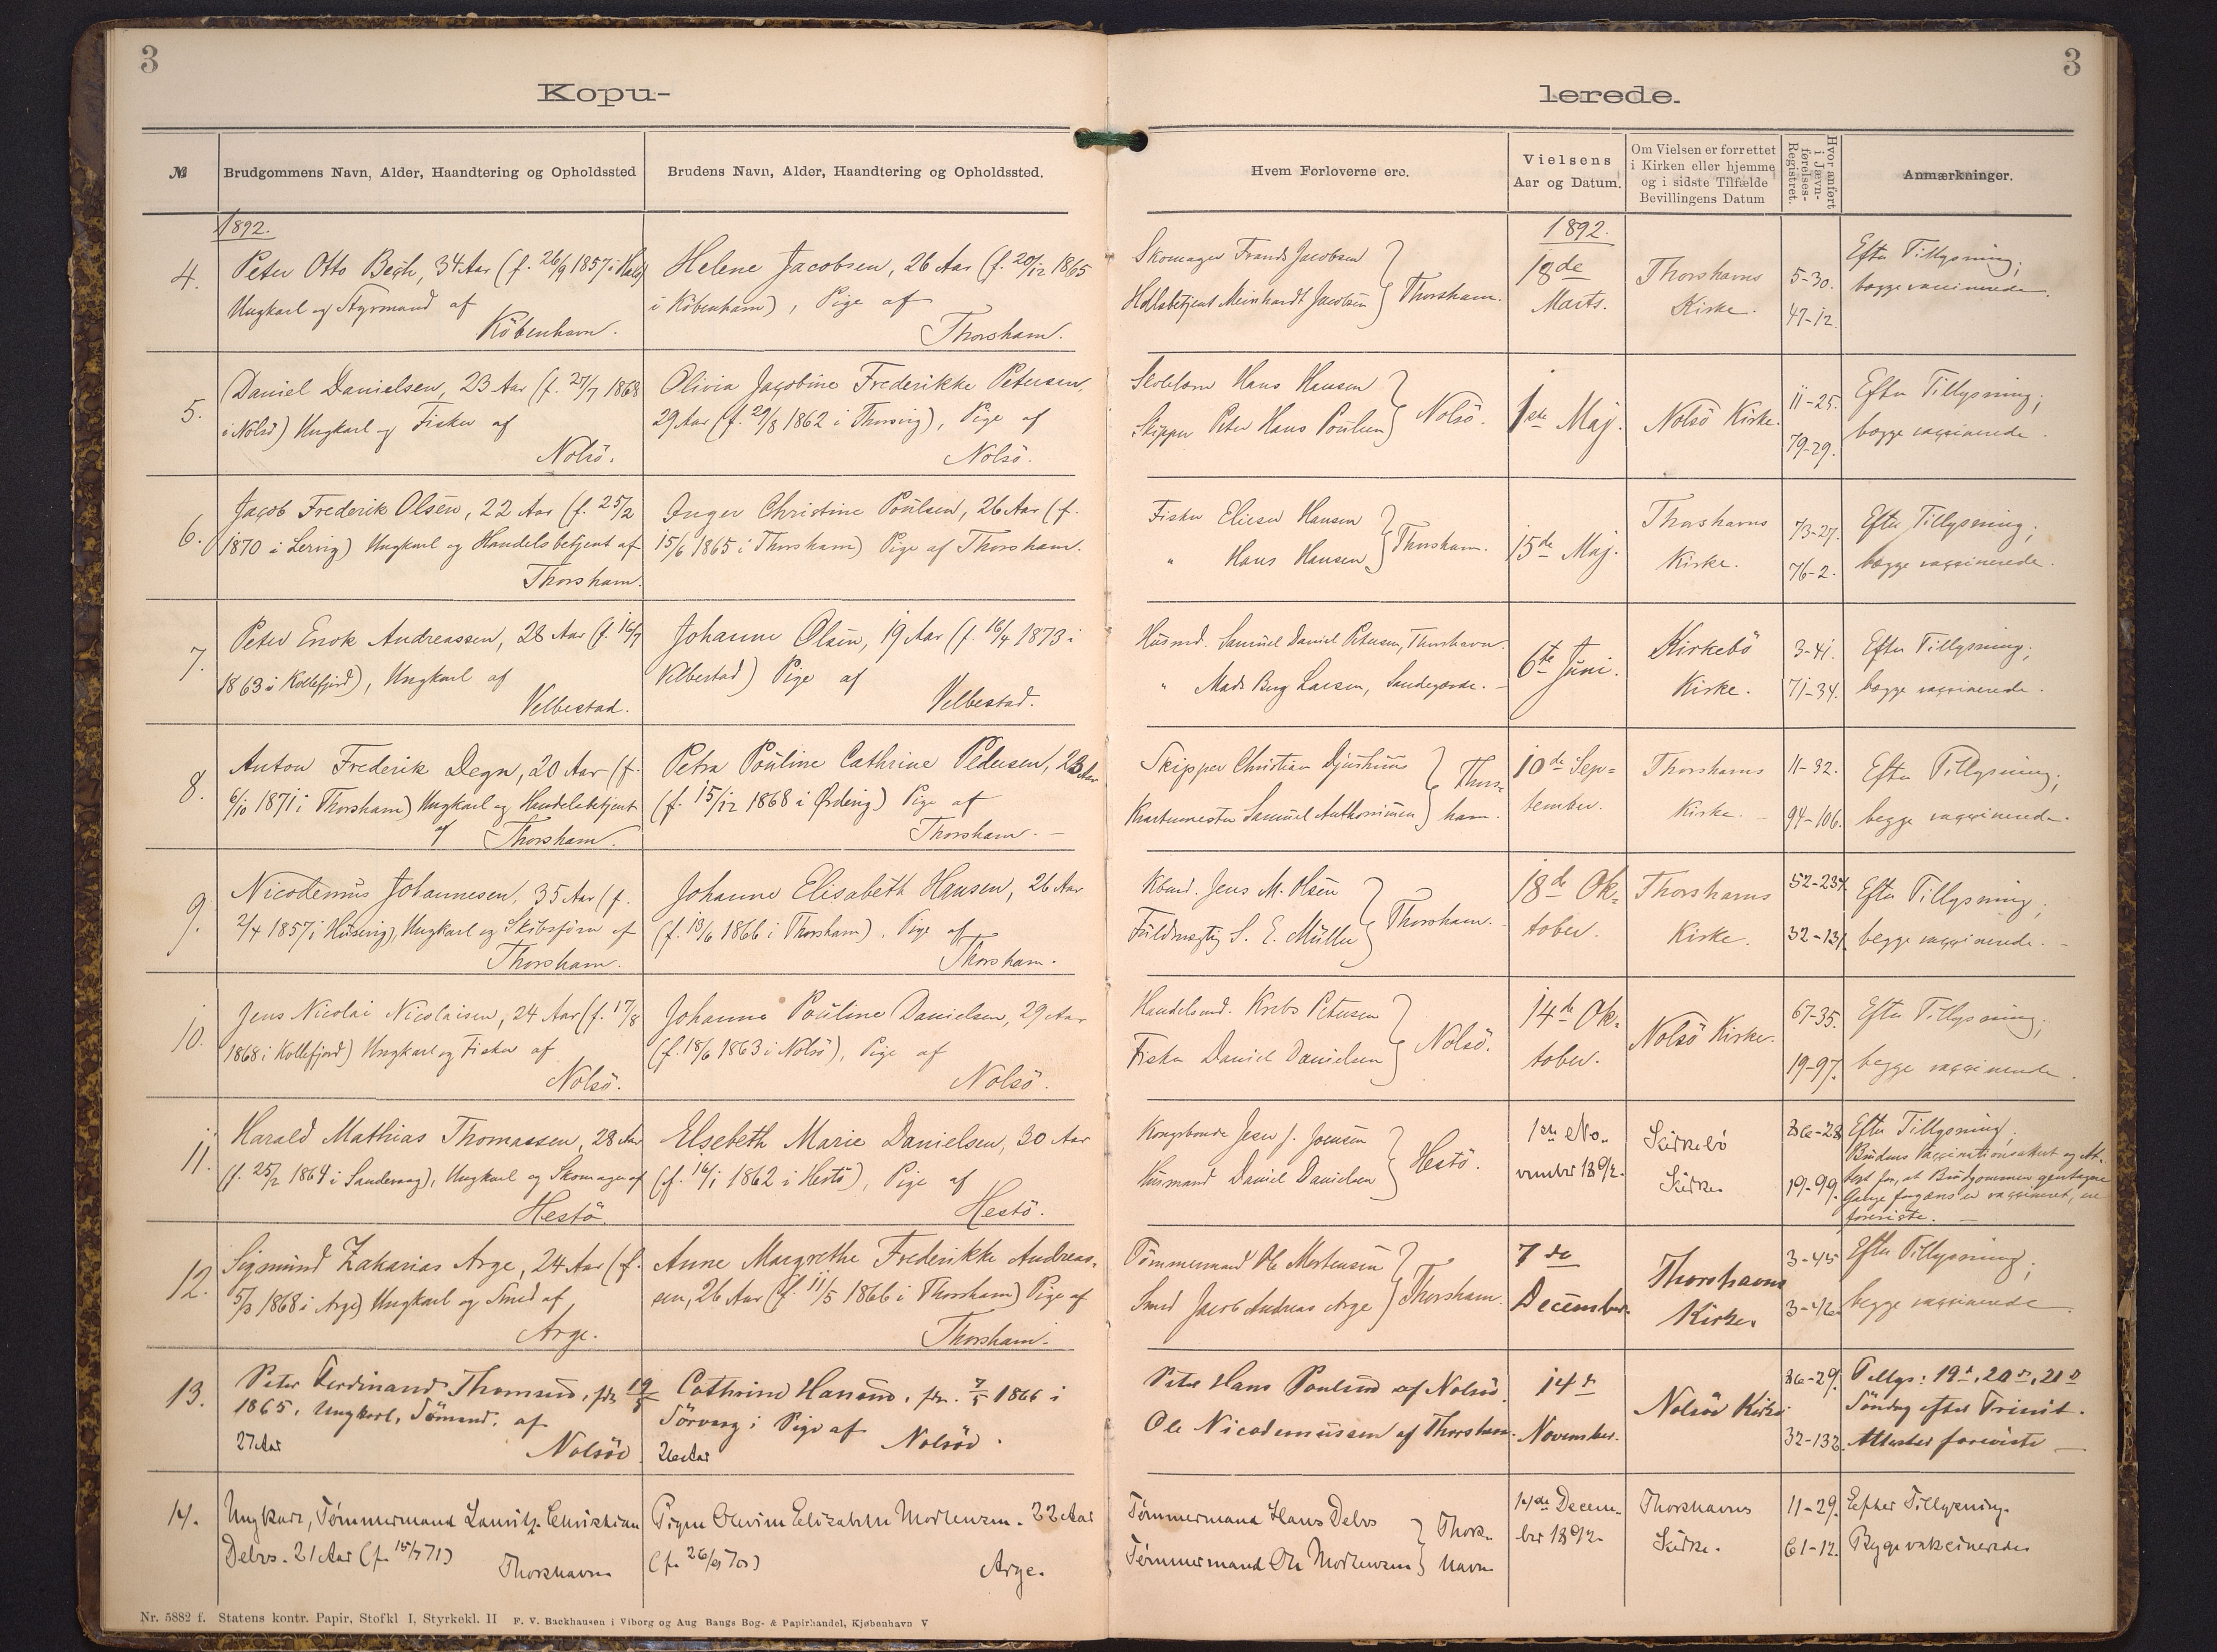 3
3
Kopu-
lerede.
№
Brudgommens Navn, Alder, Haandtering og Opholdssted
Brudens Navn, Alder, Haandtering og Opholdssted.
Hvem Forloverne ere.
Vielsens
Aar og Datum.
Om Vielsen er forrettet
i Kirken eller hjemme
og i sidste Tilfælde
Bevillingens Datum
Hvor anført
i Jævn-
førelses-
Registret.
Anmærkninger.
1892.
1892.
4.
Peter Otto Begh, 34 Aar (f. 26/9 1857 i
Ungkarl og Styrmand af
Köbenhavn.
Helene Jacobsen, 26 Aar (f. 20/12 1865
i Köbenham), Pige af
Thorsham.
Skomager Frands Jacobsen
Meinhardt Jacobsen } Thorsham.
18de
Marts.
Thorshavns
Kirke.
5-30.
47-12.
Efter Tillysning;
begge vaccinerede.
5.
Daniel Danielsen, 23 Aar (f. 27/7 1868
i Nolsö) Ungkarl og Fisker af
Nolsö.
Olivia Jacobine Frederikke Petersen,
29 Aar (f. 29/8 1862 i Thorsvig), Pige af
Nolsö.
Hans Hansen
Skipper Peter Hans Poulsen } Nolsö.
1ste Maj.
Nolsö Kirke.
11-25.
79-29.
Efter Tillysning;
begge vaccinerede.
6.
Jacob Frederik Olsen, 22 Aar (f. 25/2
1870 i Lervig) Ungkarl og Handelsbetjent af
Thorsham.
Inger Christine Poulsen, 26 Aar (f.
15/6 1865 i Thorsham) Pige af Thorsham.
Fisker Elieser Hansen
" Hans Hansen } Thorsham.
15de Maj.
Thorshavns
Kirke.
73-27.
76-2.
Efter Tillysning;
begge vaccinerede.
7.
Peter Enok Andreassen, 28 Aar (f. 16/7
1863 i Kollefjord), Ungkarl af
Velbestad.
Johanne Olsen, 19 Aar (f. 16/4 1873 i
Velbestad) Pige af
Velbestad.
Husmd. Samuel Daniel Petersen, Thorshavn.
" Mads Berg Larsen, Sandegærde.
6te Juni.
Kirkebö
Kirke.
3-41.
71-34.
Efter Tillysning;
begge vaccinerede.
8.
Anton Frederik Degn, 20 Aar (f.
6/10 1871 i Thorsham) Ungkarl og Handelsbetjent
af Thorsham.
Petra Pouline Cathrine Pedersen, 23 Aar
(f. 15/12 1868 i Ördevig) Pige af
Thorsham.
Skipper Christian Djurhuus
Kvartermester Samuel Anthonisen } Thors-
ham.
10de Sep-
tember.
Thorshavns
Kirke.
11-32.
94-106.
Efter Tillysning;
begge vaccinerede.
9.
Nicodemus Johannesen, 35 Aar (f.
2/4 1857 i Husevig), Ungkarl og Skibsförer af
Thorsham.
Johanne Elisabeth Hansen, 26 Aar
(f. 13/6 1866 i Thorsham), Pige af
Thorsham.
Jens M. Olsen
Fuldmægtig S. E. Müller } Thorsham.
18de Ok-
tober.
Thorshavns
Kirke.
52-237.
32-131.
Efter Tillysning;
begge vaccinerede.
10.
Jens Nicolai Nicolaisen, 24 Aar (f. 17/8
1868 i Kollefjord) Ungkarl og Fisker af
Nolsö.
Johanne Pouline Danielsen, 29 Aar
(f. 18/6 1863 i Nolsö), Pige af
Nolsö.
Handelsmd. Krebs Petersen
Fisker Daniel Danielsen } Nolsö.
14de Ok-
tober.
Nolsö Kirke.
67-35.
19-97.
Efter Tillysning;
begge vaccinerede.
11.
Harald Mathias Thomassen, 28 Aar
(f. 25/2 1864 i Sandevaag), Ungkarl og Skomager af
Hestö.
Elsebeth Marie Danielsen, 30 Aar
(f. 16/1 1862 i Hestö), Pige af
Hestö.
Kongsbonde Joen J. Joensen
Husmand Daniel Danielsen } Hestö.
1ste No-
vember 1892.
Kirkebö
Kirke.
86-28
19-99.
Efter Tillysning;
Brudens Vaccinationsattest og At-
test for, at Brudgommen gentagne
Gange forgæves er vaccineret, er
foreviste.
12.
Sigmund Zakarias Arge, 24 Aar (f.
5/3 1868 i Arge) Ungkarl og Smed af
Arge.
Anne Margrethe Frederikke Andreas-
sen, 26 Aar (f. 11/5 1866 i Thorsham) Pige af
Thorsham.
Tömmermand Ole Mortensen
Smed Jacob Andreas Arge } Thorsham.
7de
December.
Thorshavns
Kirke.
3-45
3-42
Efter Tillysning;
begge vaccinerede.
13.
Peter Ferdinand Thomsen, 19/8
1865, Ungkarl, Sömand, af
27 Aar
Nolsöe
Cathrine Hansen, 7/5 1866 i
Sörvaag; Pige af
26 Aar
Nolsöe.
Peter Hans Poulsen af Nolsöe.
Ole Nicodemussen af Thorshavn.
14de
November.
Nolsöe Kirke
86-29.
32-132.
Tillys: 19de, 20de, 21de
Söndag efter Trinit.
Attester foreviste
14.
Ungkarl, Tømmermand Lauritz Christian
Debes. 21 Aar (f. 15/7 71)
Thorshavn
Pigen Olevine Elisabeth Mortensen. 22 Aar
(f. 26/9 70)
Arge.
Tømmermand Hans Debes
Tømmermand Ole Mortensen } Thors-
havn
14de Decem-
ber 1892
Thorshavns
Kirke.
11-29.
61-12.
Efter Tillysning.
Begge vakcinerede
Nr. 5882 f. Statens kontr. Papir, Stofkl I, Styrkekl. II F. V. Backhausen i Viborg og Aug Bangs Bog- & Papirhandel, Kjøbenhavn V